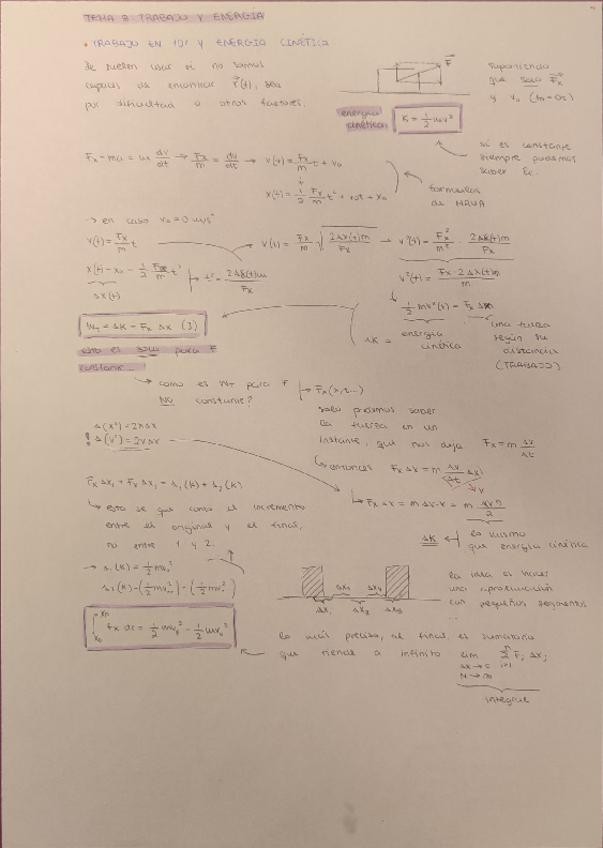 TEMA 8: TRABAJO Y ENERGIA
• TRABAJO EN 1D Y ENERGIA CINÉTICA
Se suelen usar si no somos
capaces de encontrar r⃗(t), sea
por dificultad o otros factores.
F⃗
suponiendo
que solo F⃗x
y v₀ (t₀=0s)
energía
cinética
K = ½mv²
si es constante
siempre podemos
saber Ec.
Fx = ma = m dv/dt → Fx/m = dv/dt → v(t) = Fx/m t + v₀
x(t) = ½ Fx/m t² + v₀t + x₀
formulas
de MRUA
→ en caso v₀ = 0 m/s
v(t) = Fx/m t
v(t) = Fx/m √(2Δx(t)m/Fx) → v²(t) = Fx²/m² · 2Δx(t)m/Fx
x(t) - x₀ = ½ Fx/m t²
Δx(t)
t² = 2Δx(t)m/Fx
v²(t) = Fx · 2Δx(t)/m
½mv²(t) = Fx Δx
W_T = ΔK = Fx Δx (J)
ΔK = energía
cinética
una fuerza
según su
distancia
(TRABAJO)
esto es solo para F
constante...
como es W_T para F
NO constante?
Fx(x,t...)
solo podemos saber
la fuerza en un
instante, que nos deja Fx = m Δv/Δt
Δ(x²) = 2xΔx
! Δ(v²) = 2vΔv
entonces Fx Δx = m Δv/Δt Δx
v
Fx Δx₁ + Fx Δx₂ = Δ₁(K) + Δ₂(K)
Fx Δx = m Δv·v = m Δ(v²)/2
esto se que como el incremento
entre el original y el final,
no entre 1 y 2.
ΔK
lo mismo
que energía cinética
→ Δ₁(K) = ½mv₁²
Δ₂(K) = (½mv₂²) - (½mv₁²)
Δx₁ Δx₂
la idea es hacer
una aproximación
con pequeños segmentos
...
∫ Fx dx = ½mv² - ½mv₀²
x₀
lo más preciso, al final, es sumatoria
que tiende a infinito lim Σ Fᵢ Δxᵢ
Δx→0 i=1
N→∞
integral